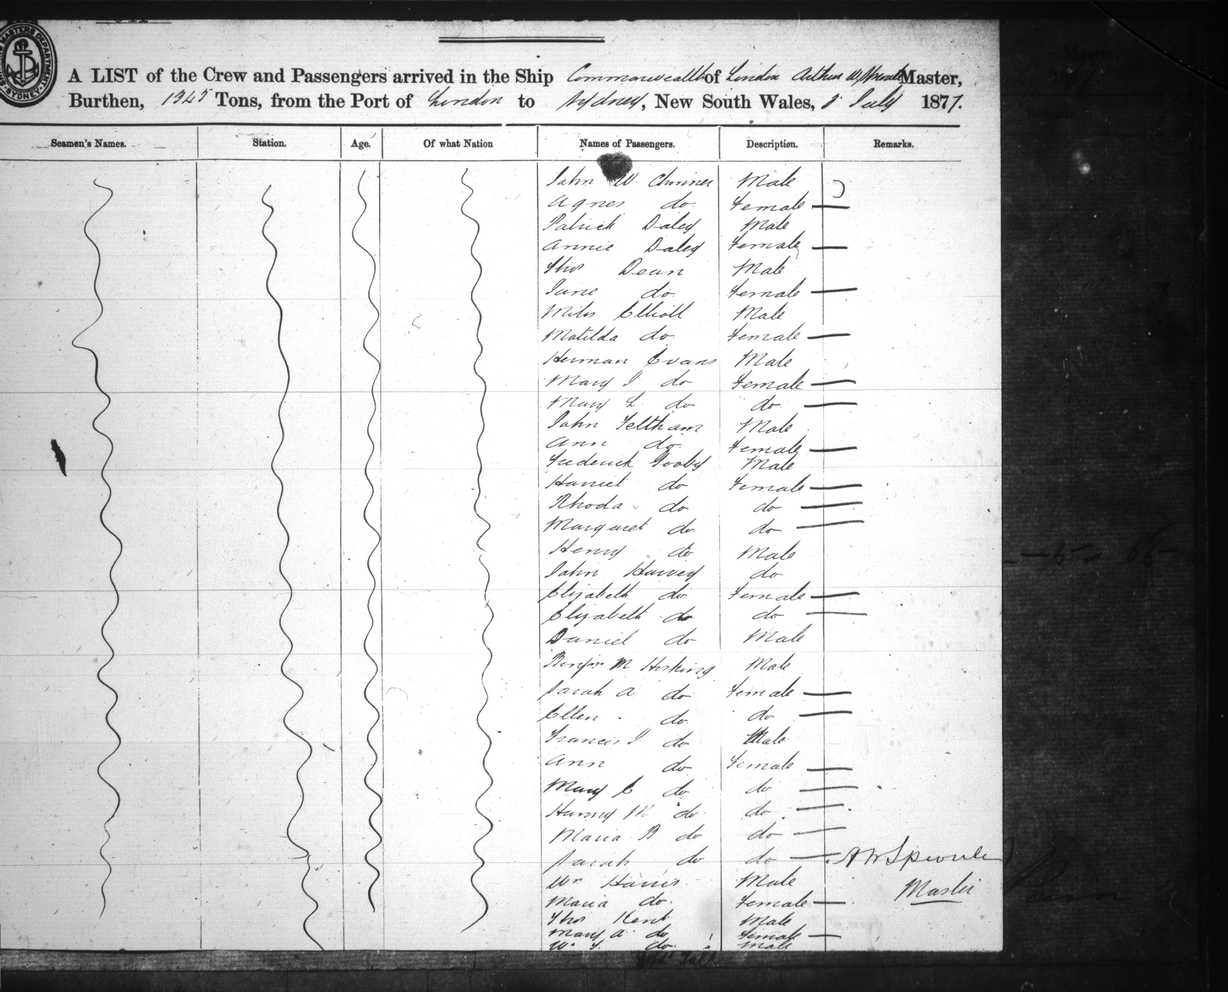 A LIST of the Crew and Passengers arrived in the Ship Commonwealth of London Arthur W Master,
Burthen, 1345 Tons, from the Port of London to Sydney, New South Wales, 8 July 1877.
Seamen's Names. Station. Age. Of what Nation Names of Passengers. Description. Remarks.
John W. Male
Agnes do. Female —
Patrick Daley Male
Annie Daley Female —
Thos Dean Male
Jane do. Female —
Miles Elliott Male
Matilda do. Female —
Herman Evans Male
Mary J do Female —
Mary L do do —
John Feltham Male
Ann do. Female —
Frederick Gooby Male
Harriet do Female —
Rhoda do do —
Margaret do do —
Henry do Male
John Harvey do
Elizabeth do Female —
Elizabeth do do —
Daniel do Male
Benjn M Hosking Male
Sarah A do Female —
Ellen do do —
Francis J do Male
Ann do Female —
Mary E do do —
M do do —
Maria B do do —
Sarah do do — A W Sproule
Wm Harris Male Master
Maria do. Female —
Thos Kent Male
Mary A do Female —
Wm do. Male